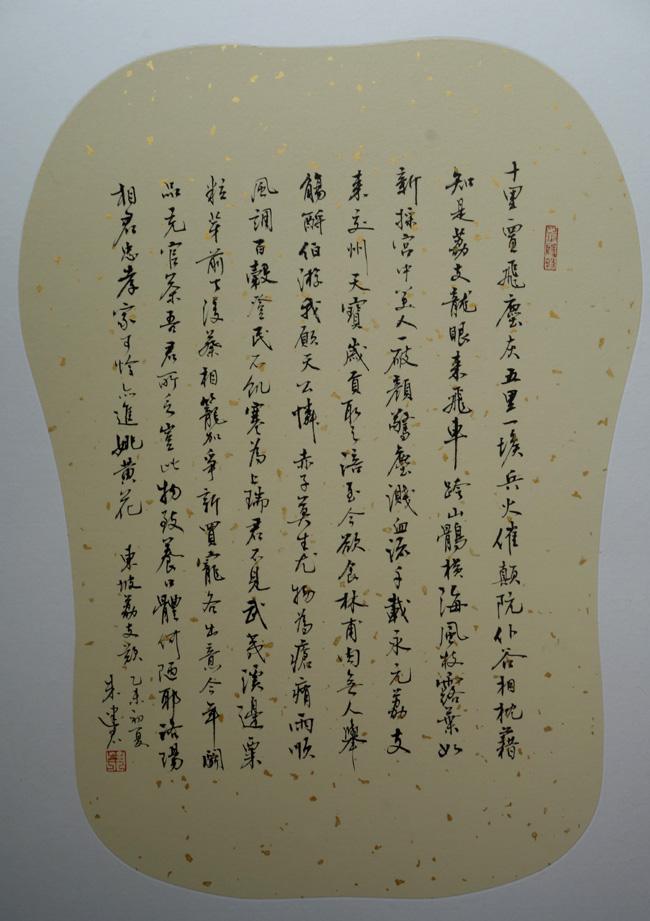 十里一置飛塵灰五里一堠兵火催顛阬仆谷相枕藉
知是荔支龍眼來飛車跨山鶻橫海風枝露葉如
新採宮中美人一破顏驚塵濺血流千載永元荔支
來交州天寶歲貢取之涪至今欲食林甫肉無人舉
觴酹伯游我願天公憐赤子莫生尤物為瘡痏雨順
風調百穀登民不飢寒為上瑞君不見武夷溪邊粟
粒芽前丁後蔡相籠加爭新買寵各出意今年鬥
品充官茶吾君所乏豈此物致養口體何陋耶洛陽
相君忠孝家可憐亦進姚黃花
東坡荔支歎乙未初夏
朱建